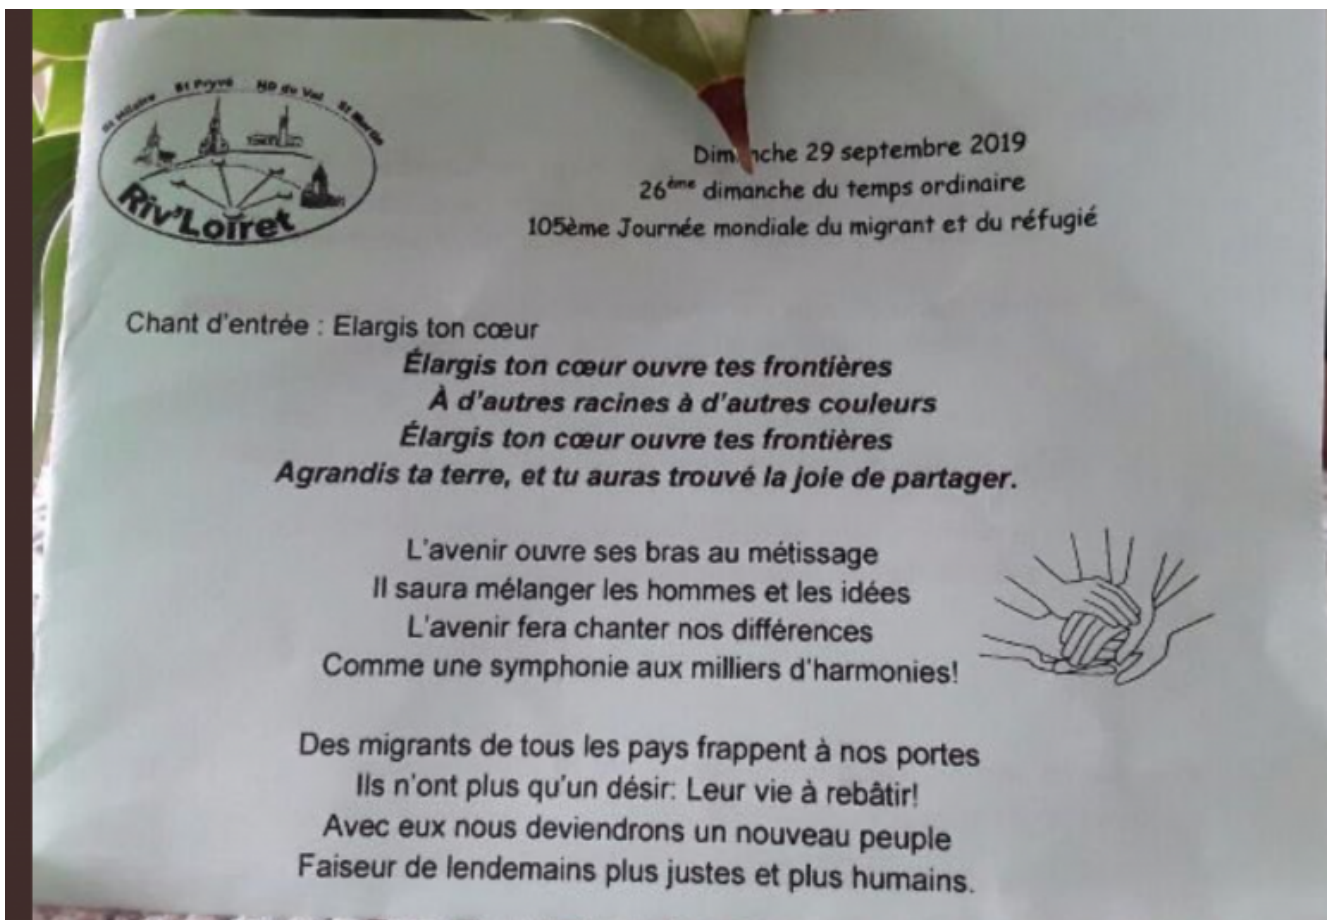 St Hilaire St Pryvé ND du Val St Martin
Riv'Loiret
Dimanche 29 septembre 2019
26ème dimanche du temps ordinaire
105ème Journée mondiale du migrant et du réfugié
Chant d'entrée : Elargis ton cœur
Élargis ton cœur ouvre tes frontières
À d'autres racines à d'autres couleurs
Élargis ton cœur ouvre tes frontières
Agrandis ta terre, et tu auras trouvé la joie de partager.
L'avenir ouvre ses bras au métissage
Il saura mélanger les hommes et les idées
L'avenir fera chanter nos différences
Comme une symphonie aux milliers d'harmonies!
Des migrants de tous les pays frappent à nos portes
Ils n'ont plus qu'un désir: Leur vie à rebâtir!
Avec eux nous deviendrons un nouveau peuple
Faiseur de lendemains plus justes et plus humains.